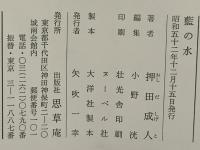 藍の水
昭和五十二年十二月十五日発行
著者 押田成人
おしだしげと
編集 小野洸
印刷 壮光舎印刷
ヌーベル社
製本 大洋社製本
発行者 矢吹一幸
発行所 出版社 思草庵
東京都千代田区神田神保町二ー二〇
城南会館内 郵便番号一〇一
電話・〇三(二六二)〇七九〇
振替・東京三ー一一八八七番